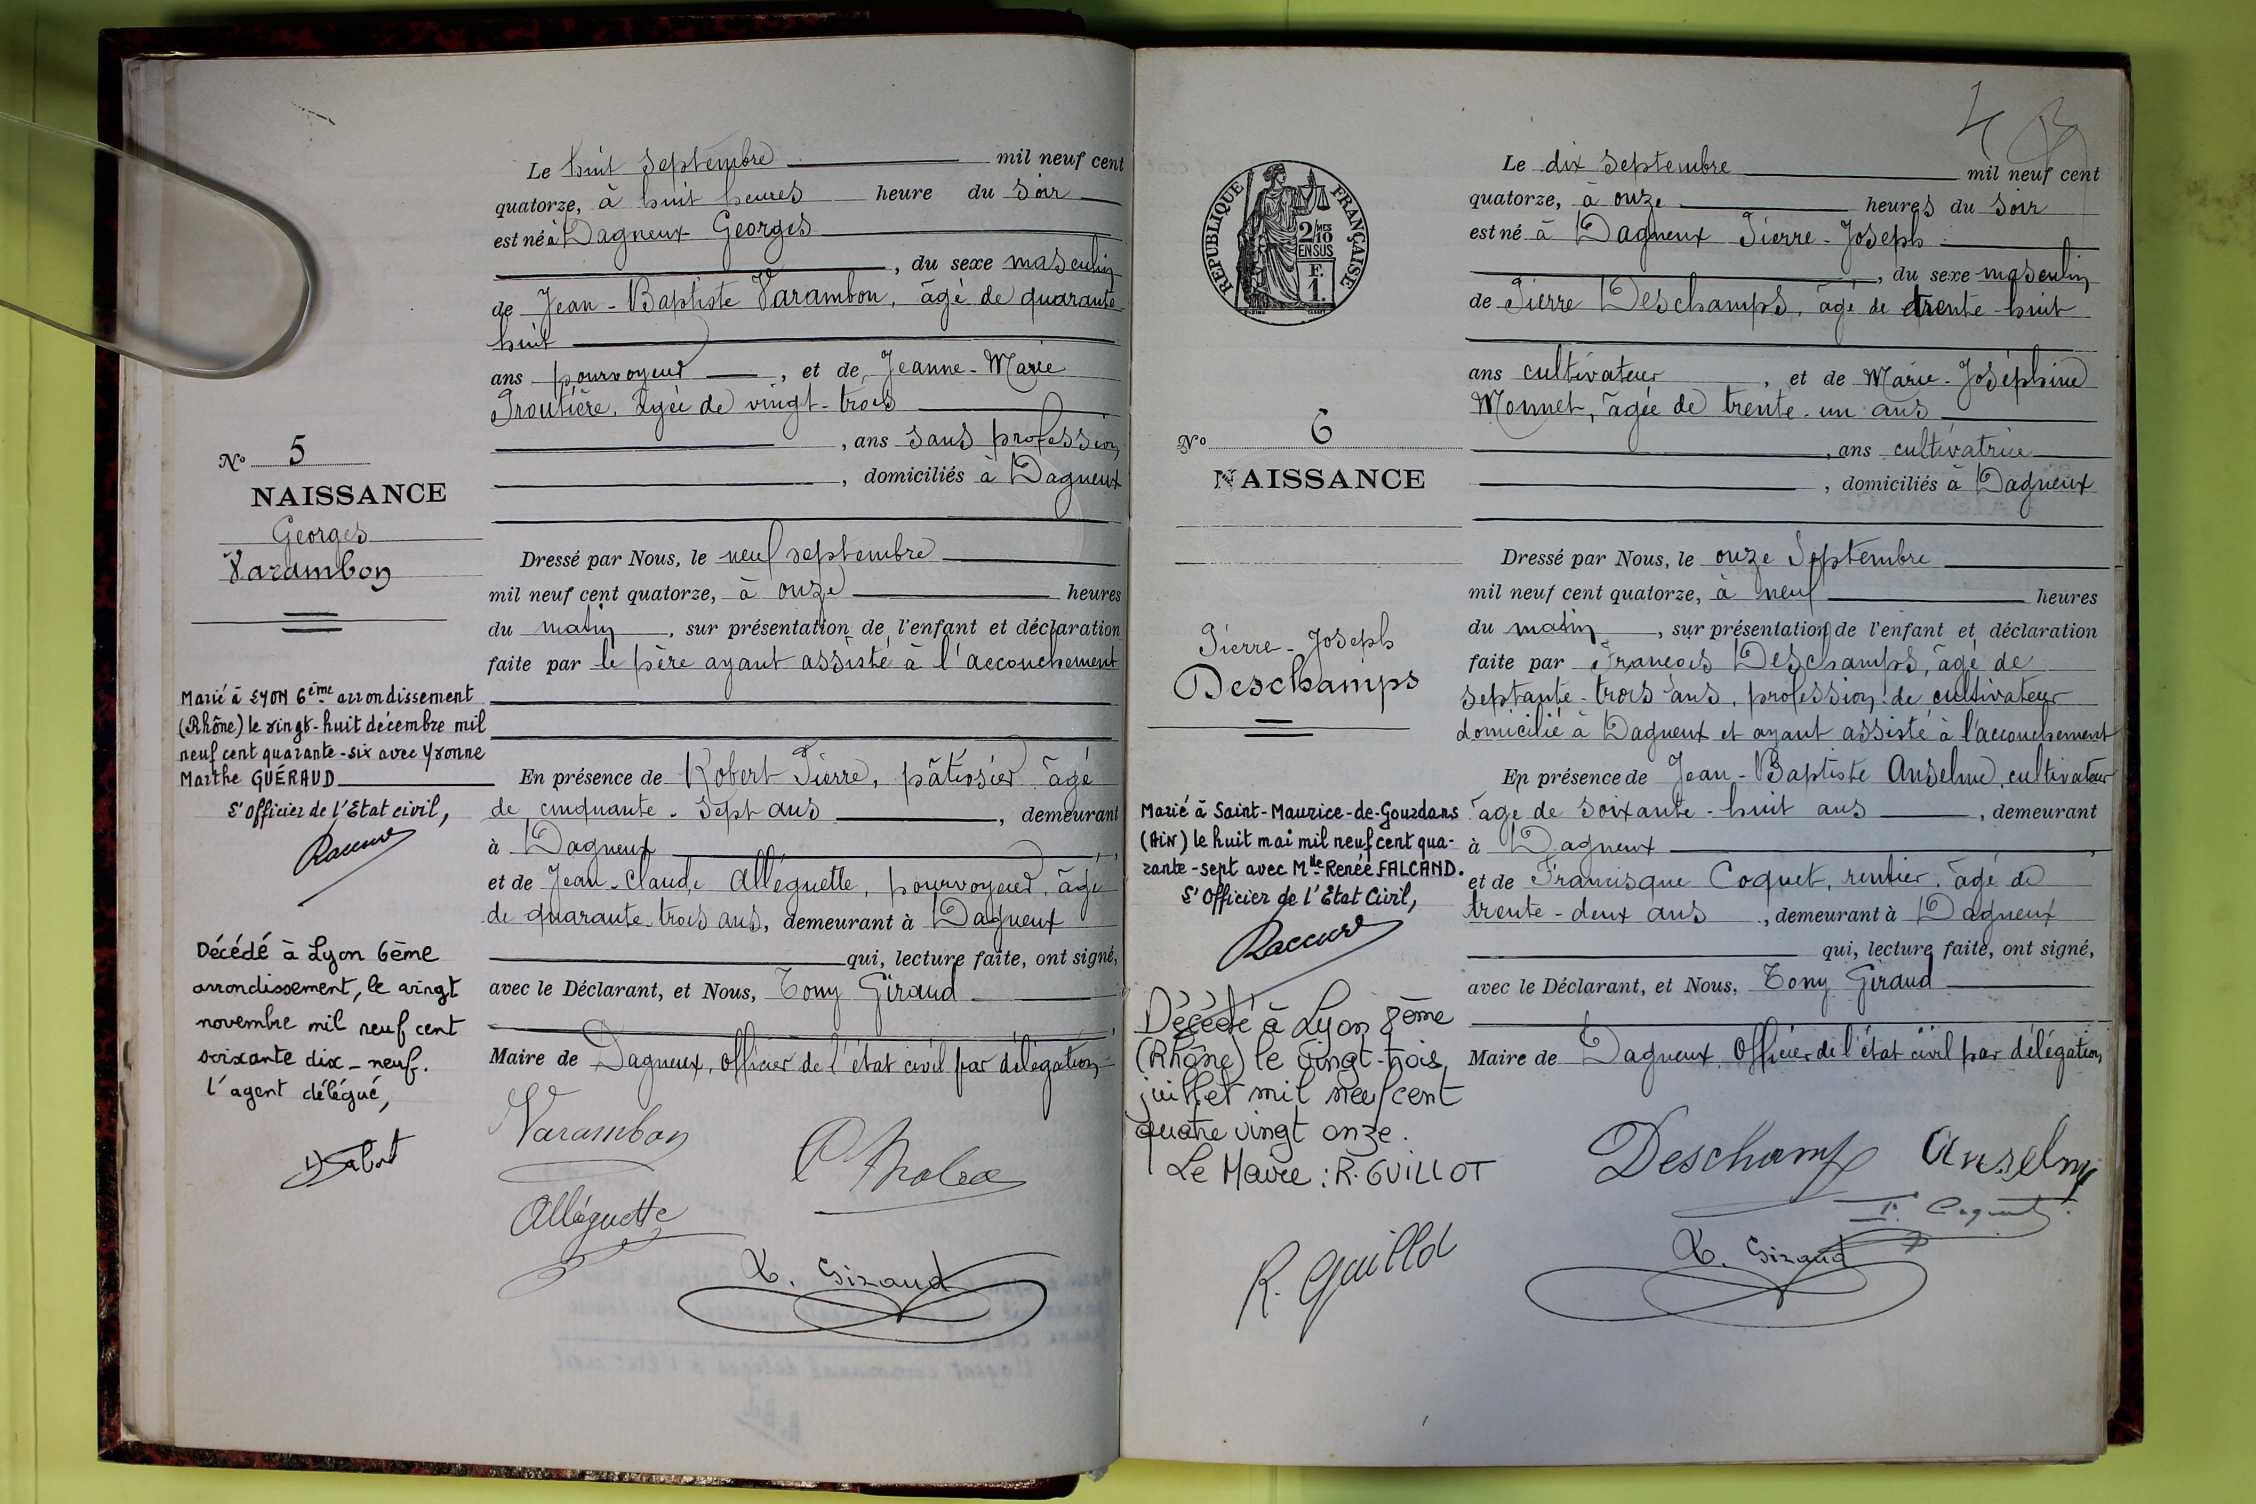 Le huit septembre mil neuf cent
quatorze, à huit heures heure du soir
est né à Dagneux Georges
, du sexe masculin
de Jean-Baptiste Varambon, âgé de quarante
huit
ans pourvoyeur, et de Jeanne-Marie
Troutière, âgée de vingt-trois
, ans sans profession
, domiciliés à Dagneux
No 5
NAISSANCE
Georges
Varambon
Dressé par Nous, le neuf septembre
mil neuf cent quatorze, à onze heures
du matin, sur présentation de l'enfant et déclaration
faite par le père ayant assisté à l'accouchement
Marié à LYON 6ème arrondissement
(Rhône) le vingt-huit décembre mil
neuf cent quarante-six avec Yvonne
Marthe GUÉRAUD
L'Officier de l'Etat civil,
En présence de Robert Pierre, pâtissier âgé
de cinquante-sept ans, demeurant
à Dagneux,
et de Jean-Claude Alléguette, pourvoyeur, âgé
de quarante-trois ans, demeurant à Dagneux
qui, lecture faite, ont signé,
avec le Déclarant, et Nous, Tony Giraud
Maire de Dagneux, officier de l'état civil par délégation
Décédé à Lyon 6ème
arrondissement, le vingt
novembre mil neuf cent
soixante dix-neuf.
l'agent délégué,
Varambon
Alléguette
T. Giraud
4
RÉPUBLIQUE FRANÇAISE
2/10 MES
EN SUS
F.
1.
Le dix septembre mil neuf cent
quatorze, à onze heures du soir
est né à Dagneux Pierre-Joseph
, du sexe masculin
de Pierre Deschamps, âgé de trente-huit
ans cultivateur, et de Marie-Joséphine
Monnet, âgée de trente-un ans
, ans cultivatrice
, domiciliés à Dagneux
No 6
NAISSANCE
Pierre-Joseph
Deschamps
Dressé par Nous, le onze Septembre
mil neuf cent quatorze, à neuf heures
du matin, sur présentation de l'enfant et déclaration
faite par François Deschamps, âgé de
septante-trois ans, profession de cultivateur
domicilié à Dagneux et ayant assisté à l'accouchement
En présence de Jean-Baptiste Anselme, cultivateur
âgé de soixante-huit ans, demeurant
à Dagneux,
et de Francisque Coquet, rentier, âgé de
trente-deux ans, demeurant à Dagneux
qui, lecture faite, ont signé,
avec le Déclarant, et Nous, Tony Giraud
Maire de Dagneux, Officier de l'état civil par délégation
Marié à Saint-Maurice-de-Gourdans
(AIN) le huit mai mil neuf cent qua-
rante-sept avec Mlle Renée FALCAND.
L'Officier de l'Etat Civil,
Décédé à Lyon 8ème
(Rhône) le vingt-trois
juillet mil neuf cent
quatre vingt onze.
Le Maire : R. GUILLOT
R. Guillot
Deschamps Anselme
F. Coquet
T. Giraud